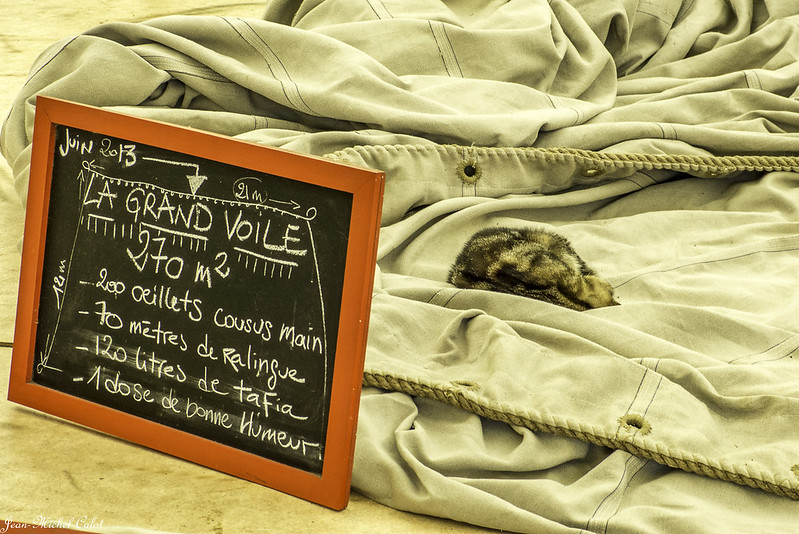 Juin 2013
21m
LA GRAND VOILE
270 m²
- 200 oeillets cousus main
- 70 mètres de Ralingue
- 120 litres de tafia
- 1 dose de bonne Humeur
Jean-Michel Calot